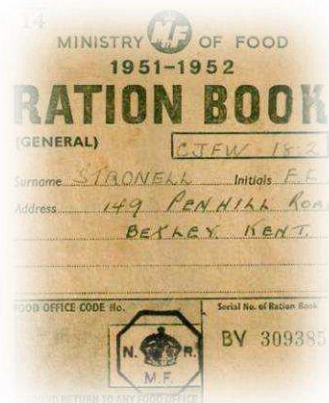 14
MINISTRY M.F OF FOOD
1951-1952
RATION BOOK
(GENERAL)
CJFW 18.2
Surname STRONELL Initials F.F
Address 149 PENHILL ROAD
BEXLEY. KENT.
FOOD OFFICE CODE No.
Serial No. of Ration Book
BV 309385
N. R.
M.F.
RETURN TO ANY FOOD OFFICE